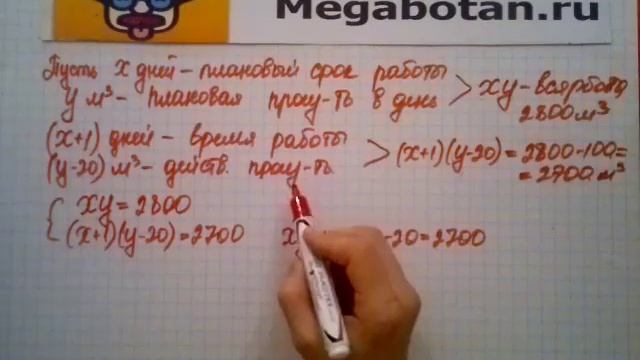 Megabotan.ru
Пусть x дней - плановый срок работы
y м³ - плановая проц-ть в день
> xy - вся работа
2800 м³
(x+1) дней - время работы
(y-20) м³ - действ. проц-ть
> (x+1)(y-20) = 2800-100=
= 2700 м³
{ xy = 2800
(x+1)(y-20) = 2700
-20=2700